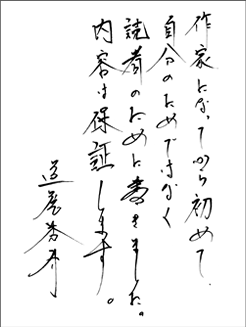 作家になってから初めて、
自分のためではなく
読者のために書きました。
内容は保証します。
道尾秀介